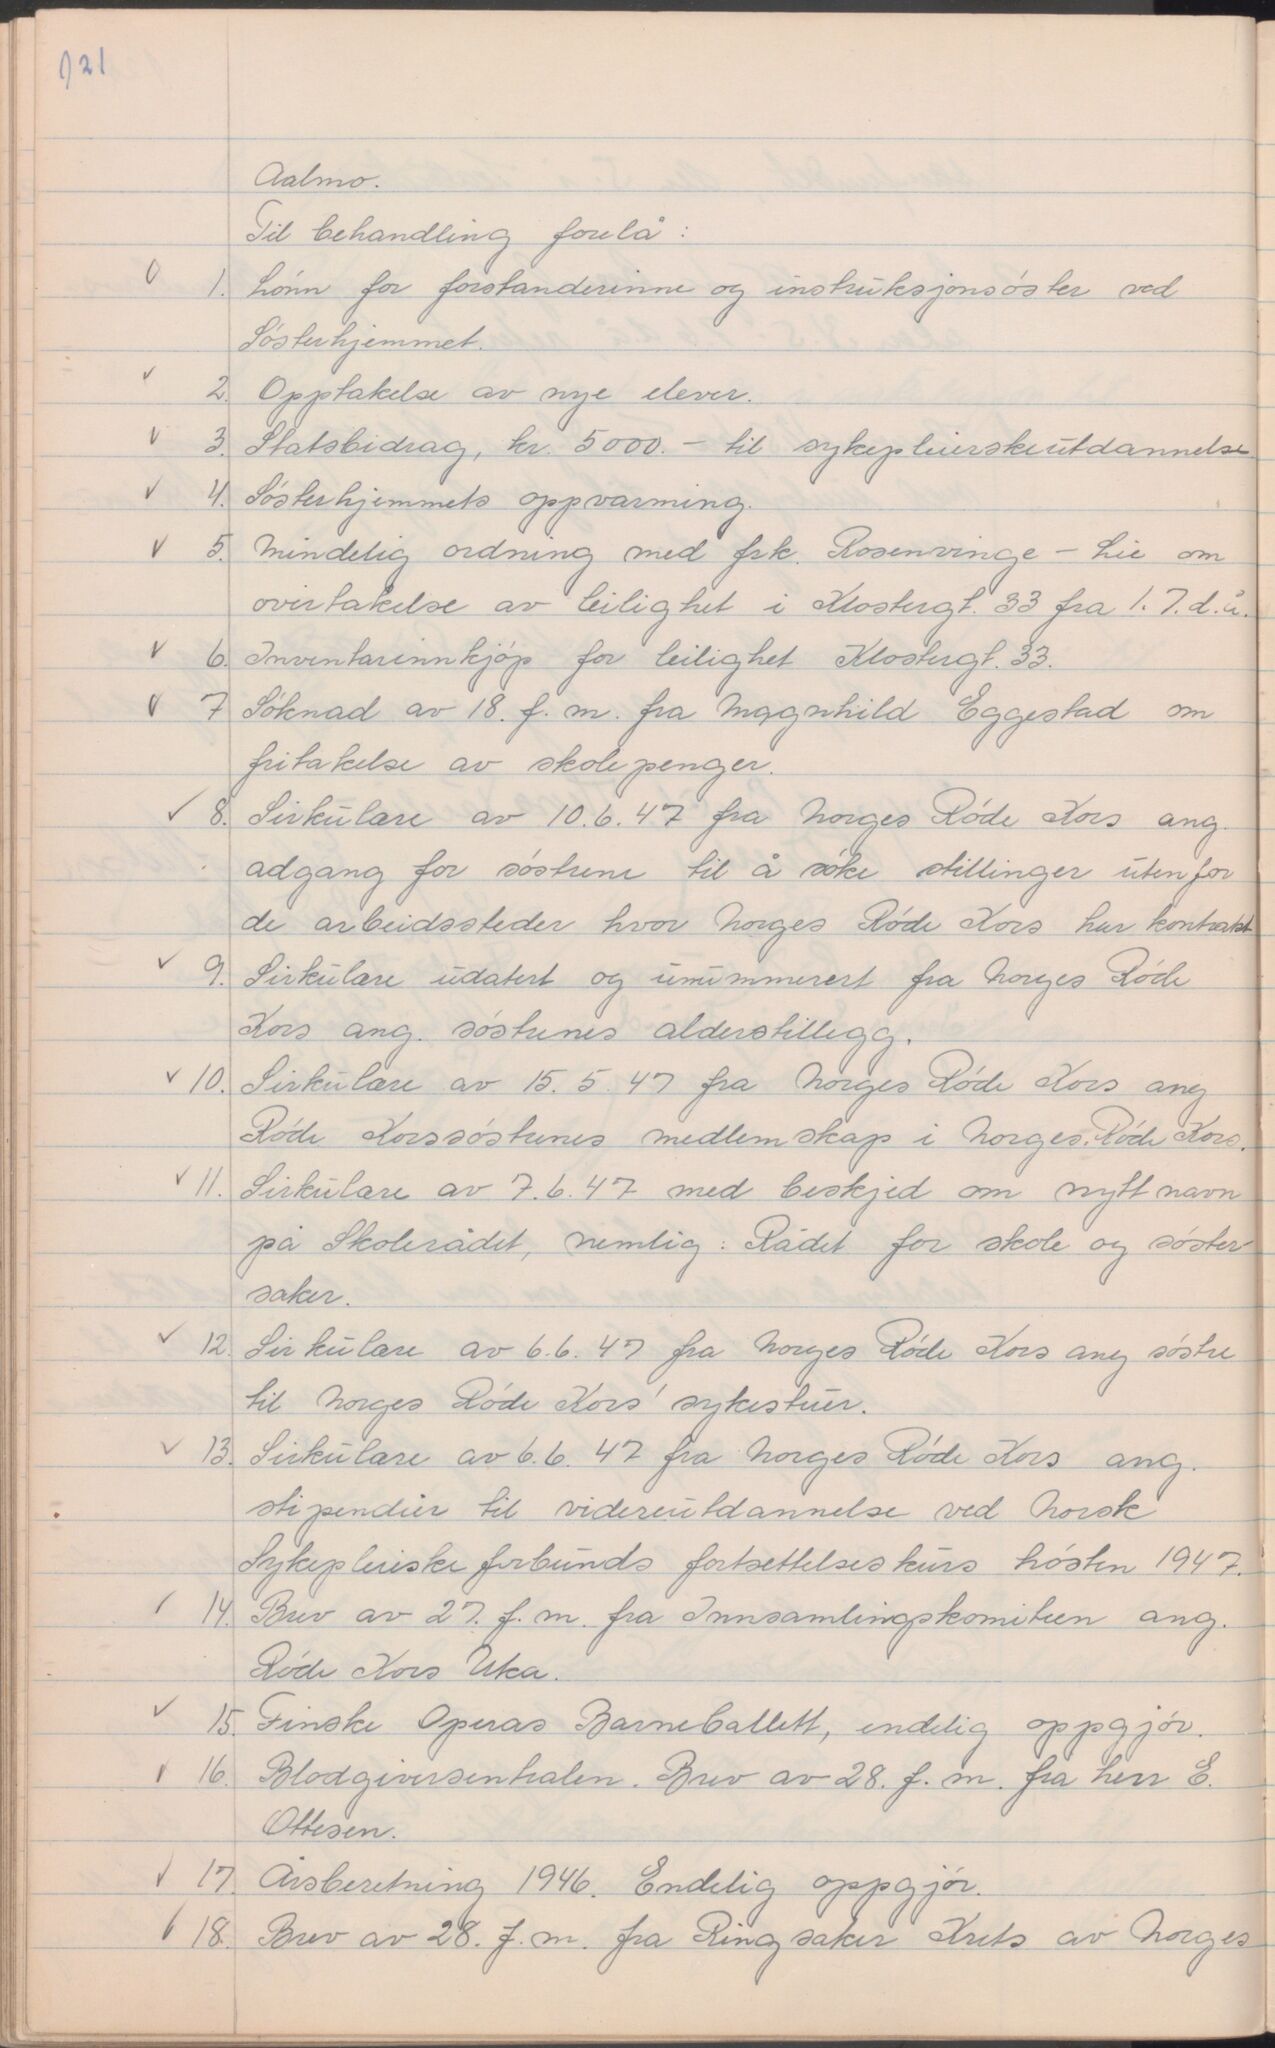 121
Aalmo.
Til behandling forelå:
1. Lönn for forstanderinne og instruksjonsöster ved
Sösterhjemmet.
2. Opptakelse av nye elever.
3. Statsbidrag, kr. 5000.- til sykepleierskeutdannelse
4. Sösterhjemmets oppvarming.
5. Mindelig ordning med frk. Rosenvinge - Lie om
overtakelse av leilighet i Klostergt. 33 fra 1.7.d.å.
6. Inventarinnkjöp for leilighet Klostergt. 33.
7 Söknad av 18. f. m. fra Magnhild Eggestad om
fritakelse av skolepenger.
8. Sirkulære av 10.6.47 fra Norges Röde Kors ang.
adgang for söstrene til å söke stillinger utenfor
de arbeidssteder hvor Norges Röde Kors har kontrakt
9. Sirkulære udatert og unummerert fra Norges Röde
Kors ang. söstrenes alderstillegg.
10. Sirkulære av 15.5.47 fra Norges Röde Kors ang
Röde Korssöstrenes medlemskap i Norges Röde Kors.
11. Sirkulære av 7.6.47 med beskjed om nytt navn
på Skolerådet, nemlig: Rådet for skole og söster-
saker.
12. Sirkulære av 6.6.47 fra Norges Röde Kors ang söstre
til Norges Röde Kors' sykestuer.
13. Sirkulære av 6.6.47 fra Norges Röde Kors ang.
stipendier til videreutdannelse ved Norsk
Sykepleiske forbunds fortsettelseskurs hösten 1947.
14. Brev av 27. f. m. fra Innsamlingskomiteen ang.
Röde Kors Uka.
15. Finske Operas Barneballett, endelig oppgjör.
16. Blodgiversentralen. Brev av 28. f. m. fra herr E.
Ottesen.
17. Årsberetning 1946. Endelig oppgjör.
18. Brev av 28. f. m. fra Ringsaker Krets av Norges